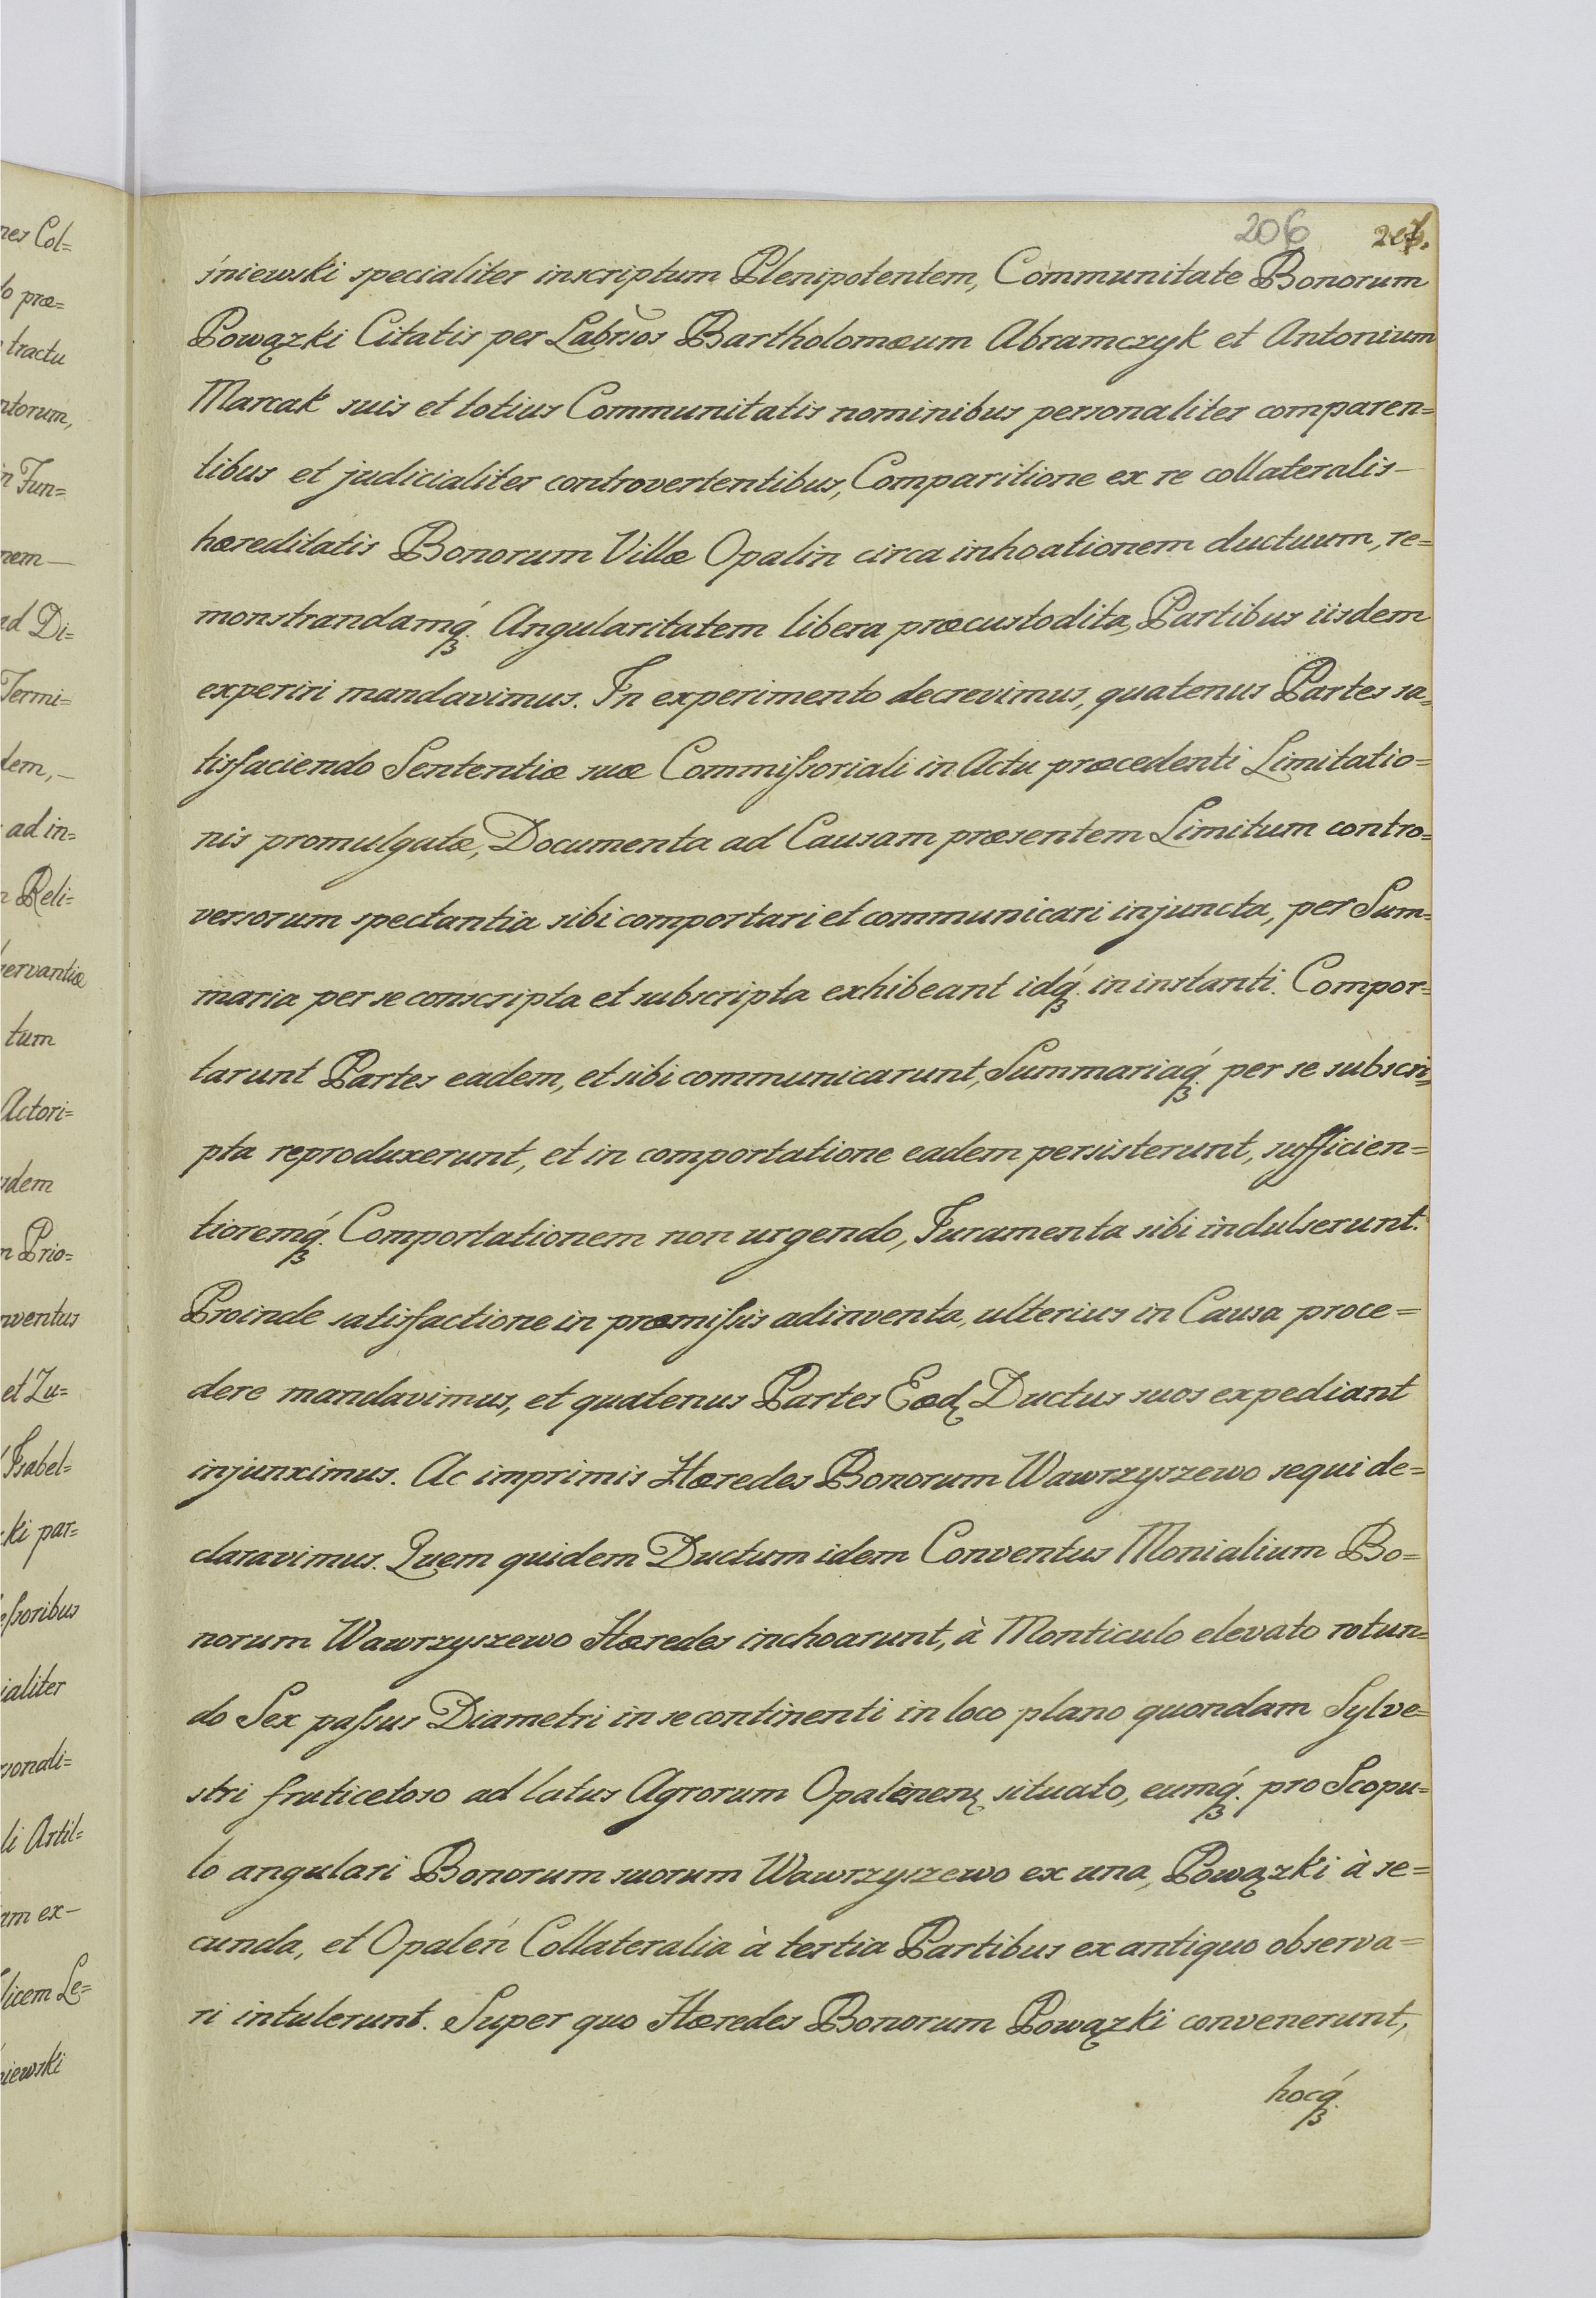 206 207.
śniewski specialiter inscriptum Plenipotentem, Communitate Bonorum
Powązki Citatis per Labrsos Bartholomæum Abramczyk et Antonium
Marcak suis et totius Communitatis nominibus personaliter comparen=
tibus et judicialiter controvertentibus, Comparitione ex re collateralis—
hæreditatis Bonorum Villæ Opalin circa inhoationem ductuum, re=
monstrandamq́ꝫ. Angularitatem libera præcustodita, Partibus iisdem
experiri mandavimus. In experimento decrevimus, quatenus Partes sa=
tisfaciendo Sententiæ suæ Commiſsoriali in Actu præcedenti Limitatio=
nis promulgatæ, Documenta ad Causam præsentem Limitum contro=
versorum spectantia sibi comportari et communicari injuncta, per Sum=
maria per se conscripta et subscripta exhibeant idq́ꝫ. in instanti. Compor=
tarunt Partes eædem, et sibi communicarunt, Summariaq́ꝫ. per se subscri=
pta reproduxerunt, et in comportatione eadem persisterunt, sufficien=
tioremq́ꝫ. Comportationem non urgendo, Juramenta sibi indulserunt.
Proinde satisfactione in præmiſsis adinventa, ulterius in Causa proce=
dere mandavimus, et quatenus Partes Eæd. Ductus suos expediant
injunximus. Ac imprimis Hæredes Bonorum Wawrzyszewo sequi de=
claravimus. Quem quidem Ductum idem Conventus Monialium Bo=
norum Wawrzyszewo Hæredes inchoarunt, à Monticulo elevato rotun=
do Sex paſsus Diametri in se continenti in loco plano quondam Sylve=
stri fruticetoso ad latus Agrorum Opalenen. situato, eumq́ꝫ. pro Scopu=
lo angulari Bonorum suorum Wawrzyszewo ex una, Powązki à se=
cunda, et Opaleń Collateralia à tertia Partibus ex antiquo observa=
ri intulerunt. Super quo Hæredes Bonorum Powązki convenerunt,
hocq́ꝫ.